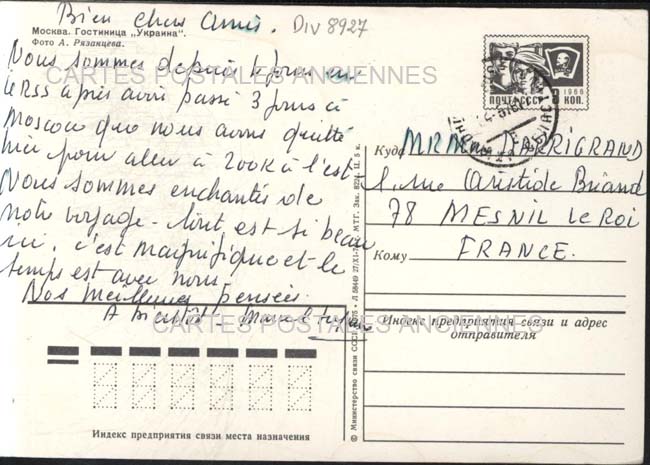 Bien chers Amis. Div 8927
Москва. Гостиница „Украина".
Фото А. Рязанцева.
Nous sommes depuis
CARTES POSTALES ANCIENNES
URSS après avoir passé 3 jours à
Moscou que nous avons quitté
hier pour aller à 200K à l'est
Nous sommes enchantés de
notre voyage - tout est si beau
ici, c'est magnifique et le
temps est avec nous.
Nos meilleures pensées.
A bientôt - Marcel
CARTES POSTALES ANCIENNES
Индекс предприятия связи места назначения
© Министерство связи СССР
ПОЧТА СССР 1966
КОП.
Куда MRM
1, rue Aristide Briand
78 MESNIL Le Roi
Кому FRANCE.
Индекс предприятия связи и адрес
отправителя